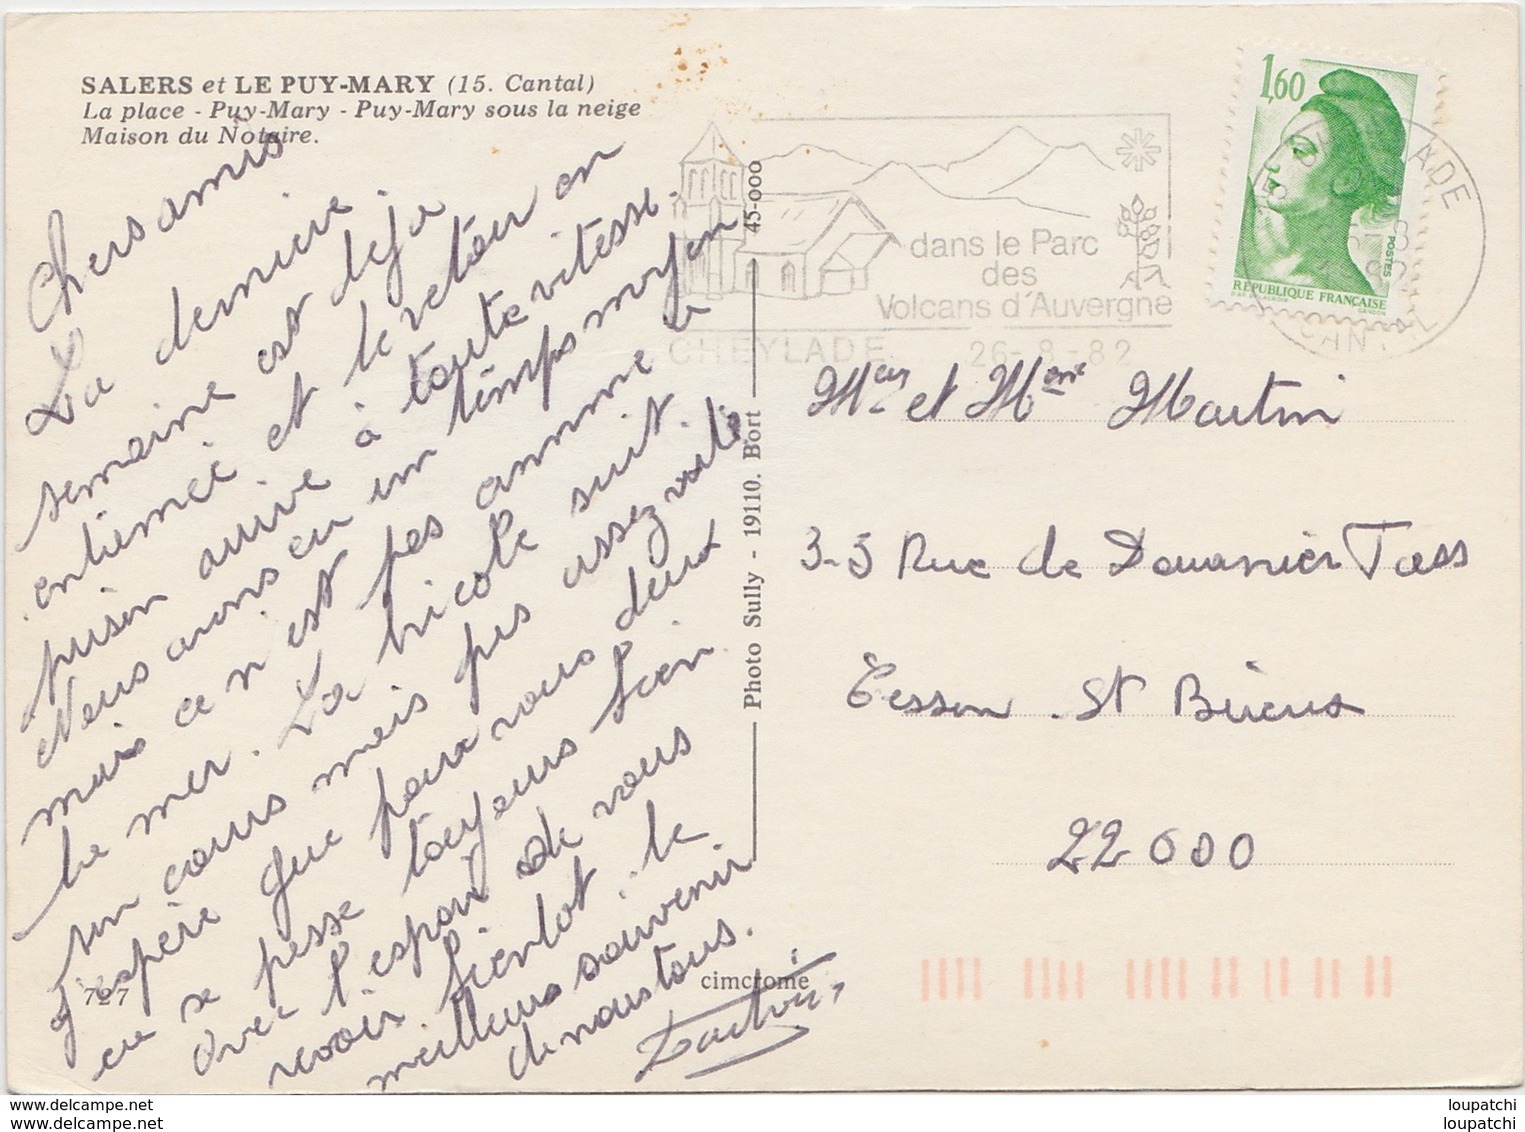 SALERS et LE PUY-MARY (15. Cantal)
La place - Puy-Mary - Puy-Mary sous la neige
Maison du Notaire.
Chers amis
La derniere
semaine est deja
entiemée et le retour en
prison arrive à toute vitesse.
Nous avons eu un temps moyen
mais ce n'est pas comme à
la mer. La bricole suit
son cours mais pas assez vite
J'espère que pour vous deux
ca se passe toujours bien
avec l'espoir de vous
revoir bientot. le
meilleurs souvenir
de nous tous.
727
cimcrome
Photo Sully - 19110. Bort
45-000
dans le Parc
des
Volcans d'Auvergne
CHEYLADE 26-8-82
1,60
POSTES
RÉPUBLIQUE FRANÇAISE
GANDON
Mr et Mme Martin
33 Rue de Douanier
Tesson St Brieux
22000
www.delcampe.net
www.delcampe.net
loupatchi
loupatchi